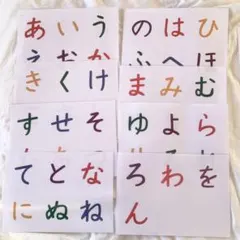 あいう
えおか
きくけ
すせそ
てとな
にぬね
のはひ
ふへほ
まみむ
ゆよら
ろわを
ん